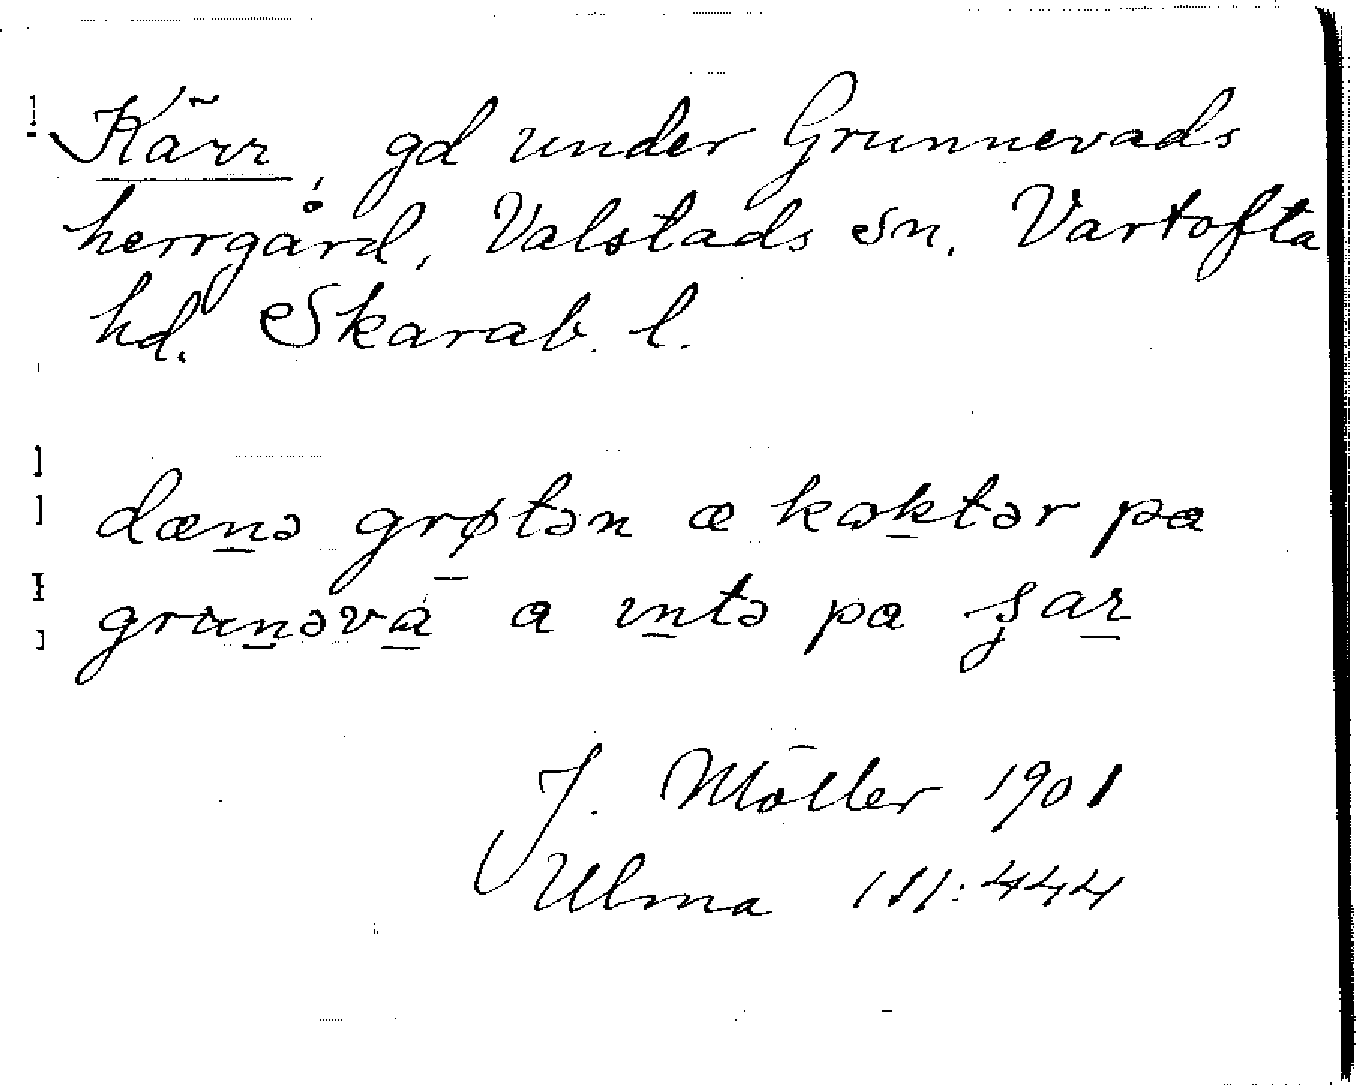 Kärr, gd under Grunnevads
herrgård, Valstads sn. Vartofta
hd. Skarab. l.
dænə grøtən æ kɷktər pɑ
grunəva a ɩntə pɑ ʂar
J. Möller 1901
Ulma 111:444